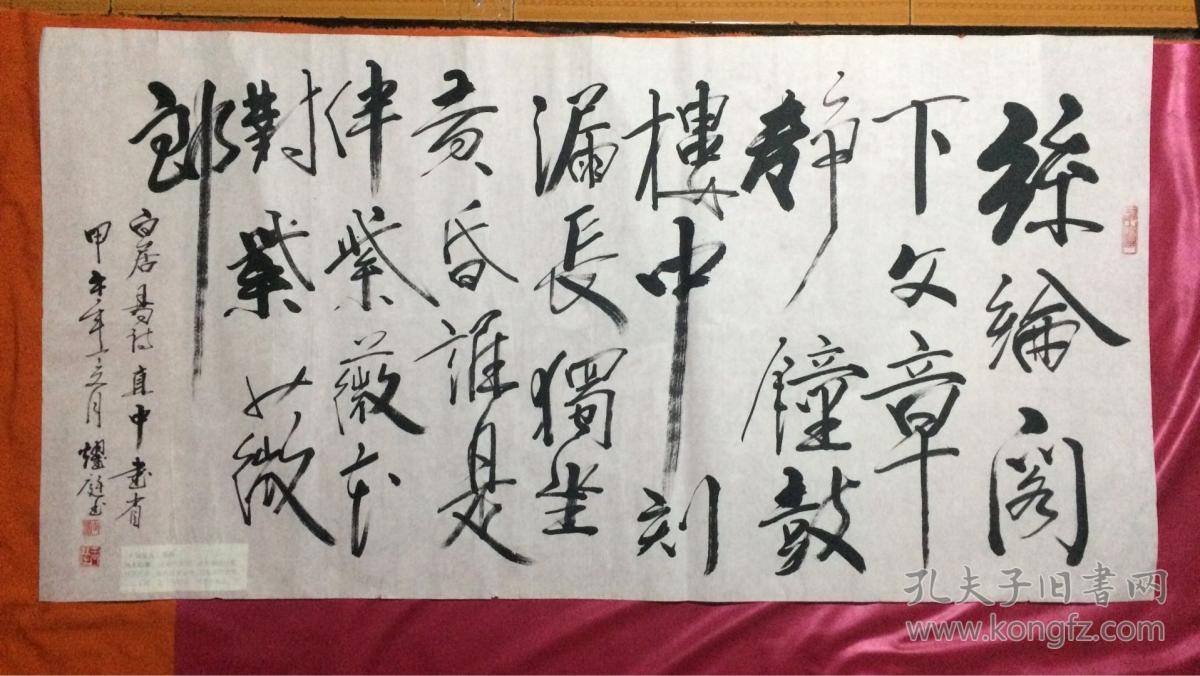 絲綸閣
下文章
靜鐘鼓
樓中刻
漏長獨坐
黄昏誰是
伴紫薇花
對紫薇
郎
白居易詩直中書省
甲午年月耀庭書
孔夫子旧書网
www.kongfz.com